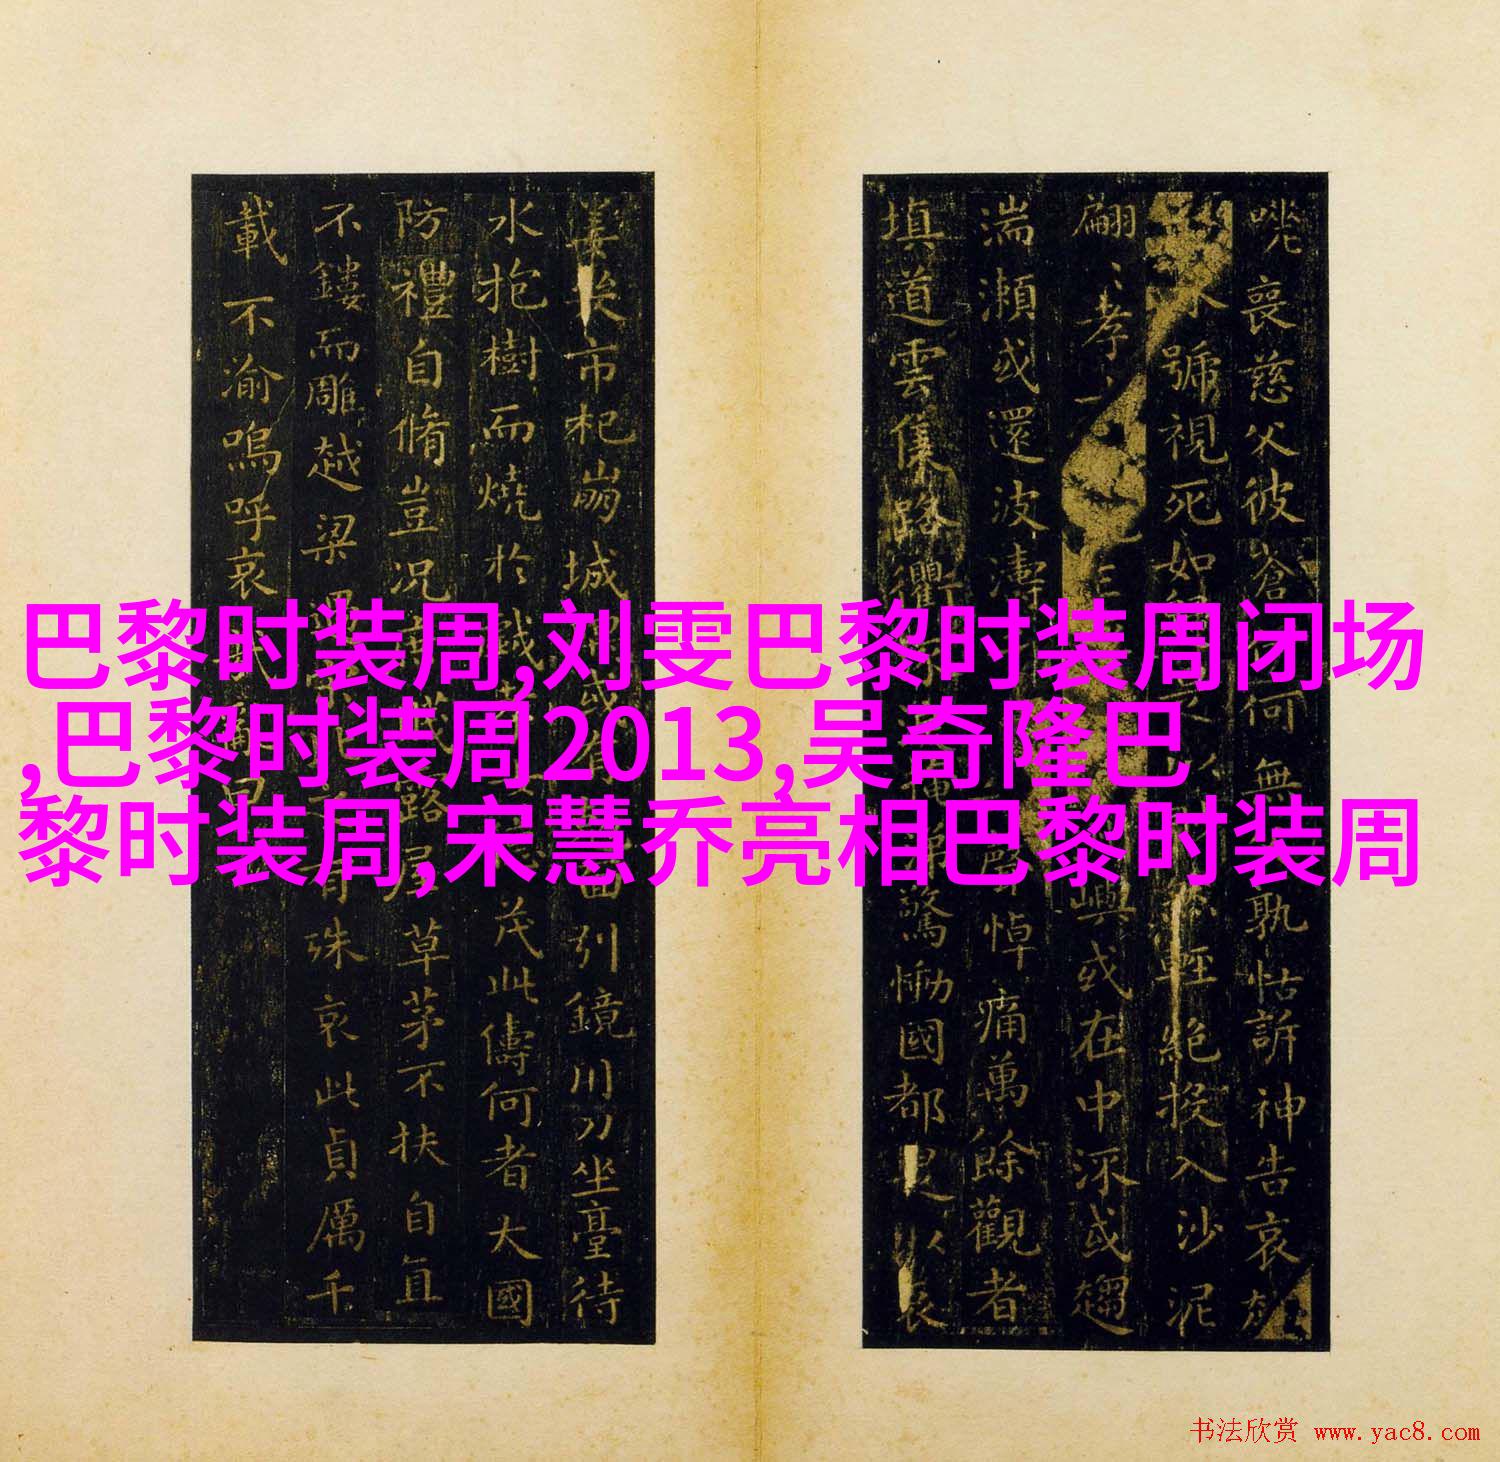 巴黎时装周,刘雯巴黎时装周闭场
,巴黎时装周2013,吴奇隆巴
黎时装周,宋慧乔亮相巴黎时装周
喪慈父彼蒼何無孰怙訴神告哀
號視死如以輕絕投入沙泥
翩〻孝嶼或在中流或趨
湍瀨或還波濤聲悼痛萬餘觀者
填道雲集路衢驚慟國都是以哀
姜哭市杞崩城或面引鏡刀坐臺待
水抱樹而燒於戲茂此儔何者大國
防禮自脩豈況露屋草茅不扶自直
不鏤而雕越梁有殊哀此貞厲千
載不渝嗚呼哀曰
书法欣赏 www.yac8.com